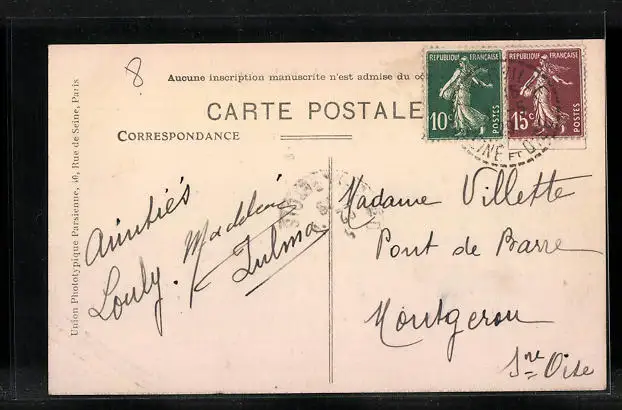 8
Aucune inscription manuscrite n'est admise du
CARTE POSTALE
CORRESPONDANCE
REPUBLIQUE FRANÇAISE
10c
POSTES
REPUBLIQUE FRANÇAISE
15c
POSTES
SEINE ET OISE
Amitiés
Louly. Madeleine
Zulma
Madame Villette
Pont de Barre
Montgeron
Sne Oise
Union Phototypique Parisienne, 40, Rue de Seine, Paris